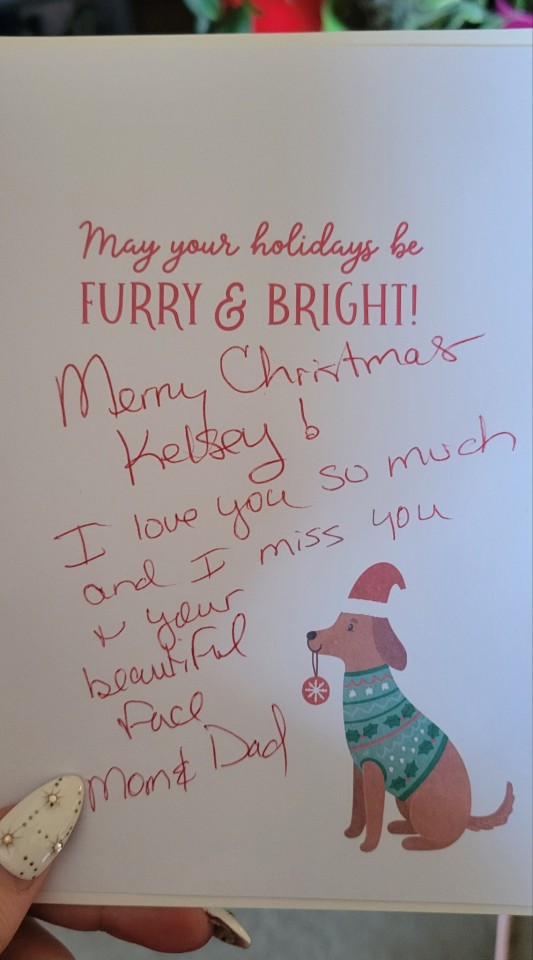 May your holidays be
FURRY & BRIGHT!
Merry Christmas
Kelsey!
I love you so much
and I miss you
& your
beautiful
Face
Mom & Dad